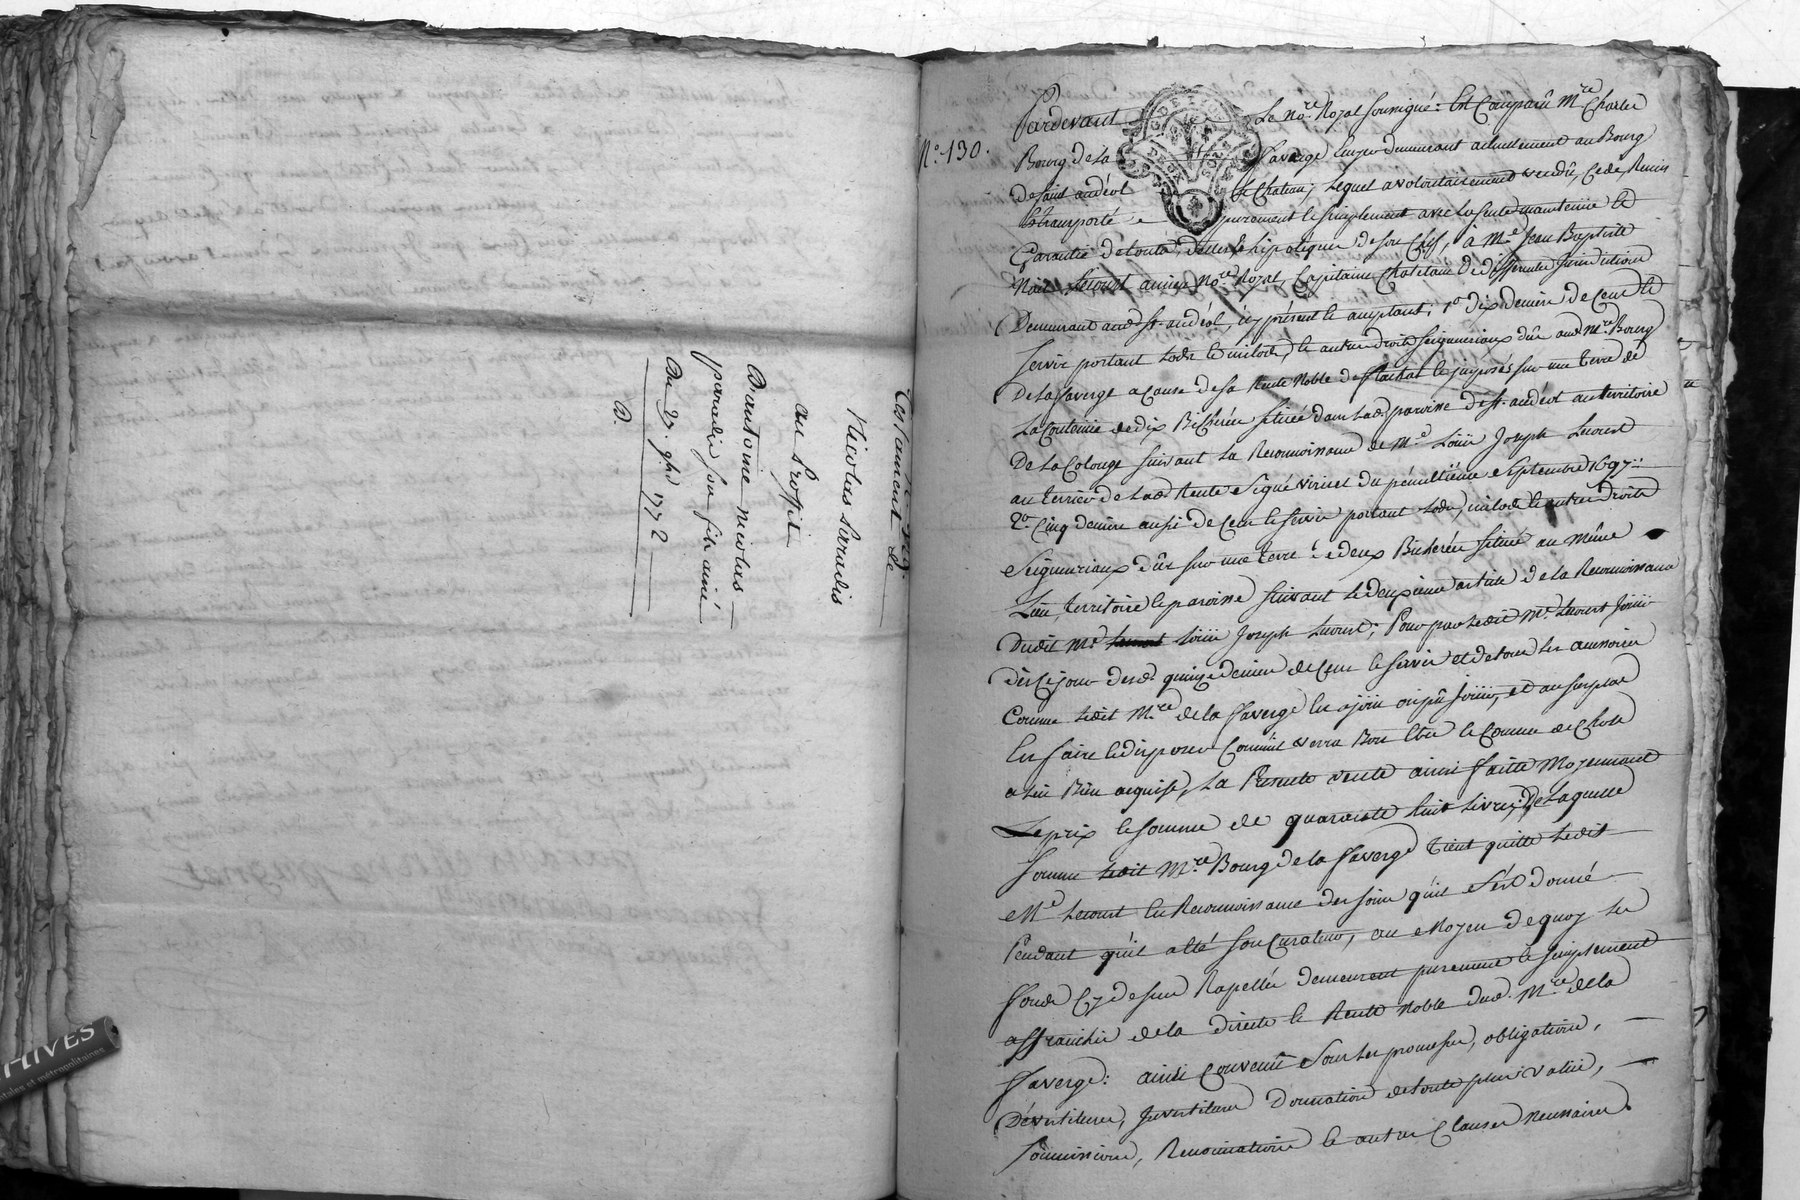 Testament de
Nicolas Paradis
au Proffit
D'antoine nicolas
paradis son fils ainé
Du 27. 9bre 1772
D.
HIVES
N.° 130.
Pardevant Le no.re Royal soussigné: Est Comparû M.re Charles
Bourg de la faverge Ecuyer demeurant actuellement au Bourg
de saint andéol le Chateau, Lequel a volontairement vendû, Cedé, Remis
Et transporté purement et simplement avec la seule maintenüe et
Garantie de toutes dettes et hipoteques de son Chef, à M.e Jean Baptiste
Noël Lecourt ancien No.re Royal, Capitaine Chatelain de differentes Jurisdictions
Demeurant aud. St. andéol, icy présent et acceptant; 1.o dix deniers de Cens et
servis portant Lods et milods, et autres droits seigneuriaux dûs aud. M.re Bourg
De la faverge a Cause de sa Rente Noble de et imposés sur une terre de
La Contenüe de dix Bicherées située dans lad. paroisse de St. andéol au territoire
De la Colonge suivant la Reconnoissance de M.e Loüis Joseph Lecourt
au terrier de lad. Rente signé du pénultiéme septembre 1697:
2.o Cinq deniers aussi de Cens et servis portant Lods, milods et autres droits
seigneuriaux dûs sur une terre de deux Bicherées située au même
Lieu, territoire et paroisse suivant le deuxieme article de la Reconnoissance
Dudit M.e Loüis Joseph Lecourt; Pour par Ledit M.e Lecourt Joüir
dès Ce jour desd. quinze deniers de Cens et servis et de tous les accessoires
Comme ledit M.re de la faverge En a joüi ou pû Joüir, et au surplus
En faire et disposer Comm'il verra Bon Etre et Comme de Chose
a lui Bien acquise, La Presente vente ainsi faitte Moyennant
Le prix et somme de quarante huit Livres; De Laquelle
somme Ledit M.re Bourg de la faverge Tient quitte Ledit
M.e Lecourt En Reconnoissance des soins qu'il s'est donné
Pendant qu'il a Eté son Curateur, au Moyen de quoy les
fonds Cy dessus Rapellés demeurent purement et simplement
affranchis de la directe et Rente Noble dud. M.re de la
faverge: ainsi Convenû sous les promesses, obligations,
Dévestitures, Investitures Donnation de toute plus valüe,
soumissions, Renonciations et autres Clauses necessaires.